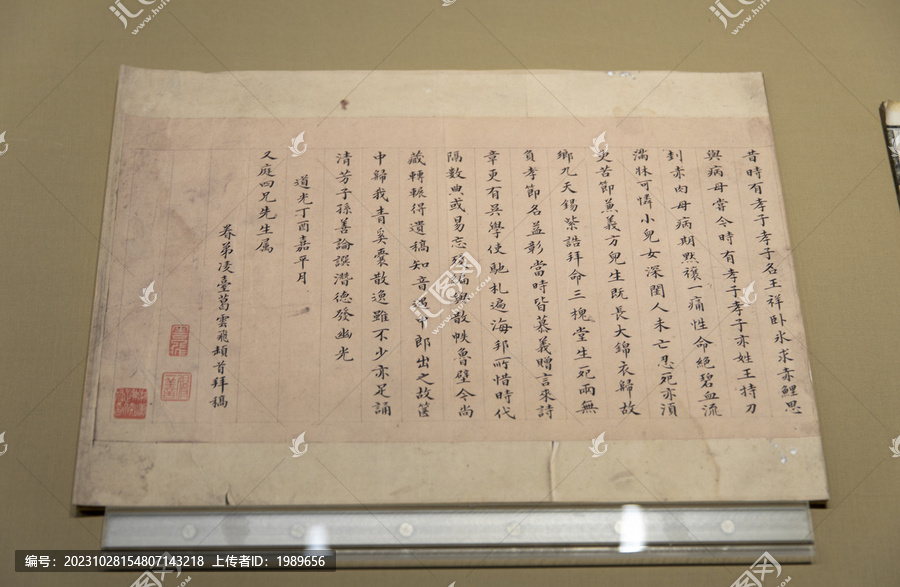 昔時有孝子孝子名王祥卧氷求赤鯉思
與病母嘗今時有孝子孝子亦姓王持刀
刲赤肉母病期黙禳一痛性命絕碧血流
滿牀可憐小兒女深閨人未亡忍死亦湏
更苦節兼義方兒生既長大錦衣歸故
鄉九天錫紫誥拜命三槐堂生死兩無
負孝節名益彰當時皆慕義贈言來詩
章更有吳學使馳札遍海邦所惜時代
隔數典或易忘殘編與散帙魯壁今尚
蔵轉輾得遺稿知音遇中郎出之故篋
中歸我青奚囊散逸雖不少亦足誦
清芳子孫善論譔潛德發幽光
道光丁酉嘉平月
又庭四兄先生属
眷弟凌臺葛雲飛頓首拜稿
编号：20231028154807143218 上传者ID：1989656
汇图网